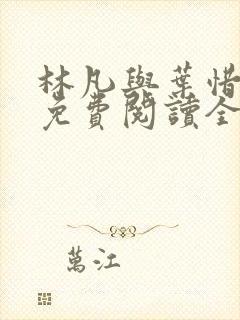 林凡與葉惜
免費閱讀全
萬江